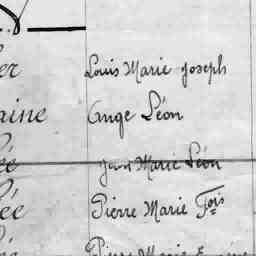 er Louis Marie Joseph
aine Ange Léon
ée Jean Marie Léon
ée Pierre Marie Fois
Pierre Marie